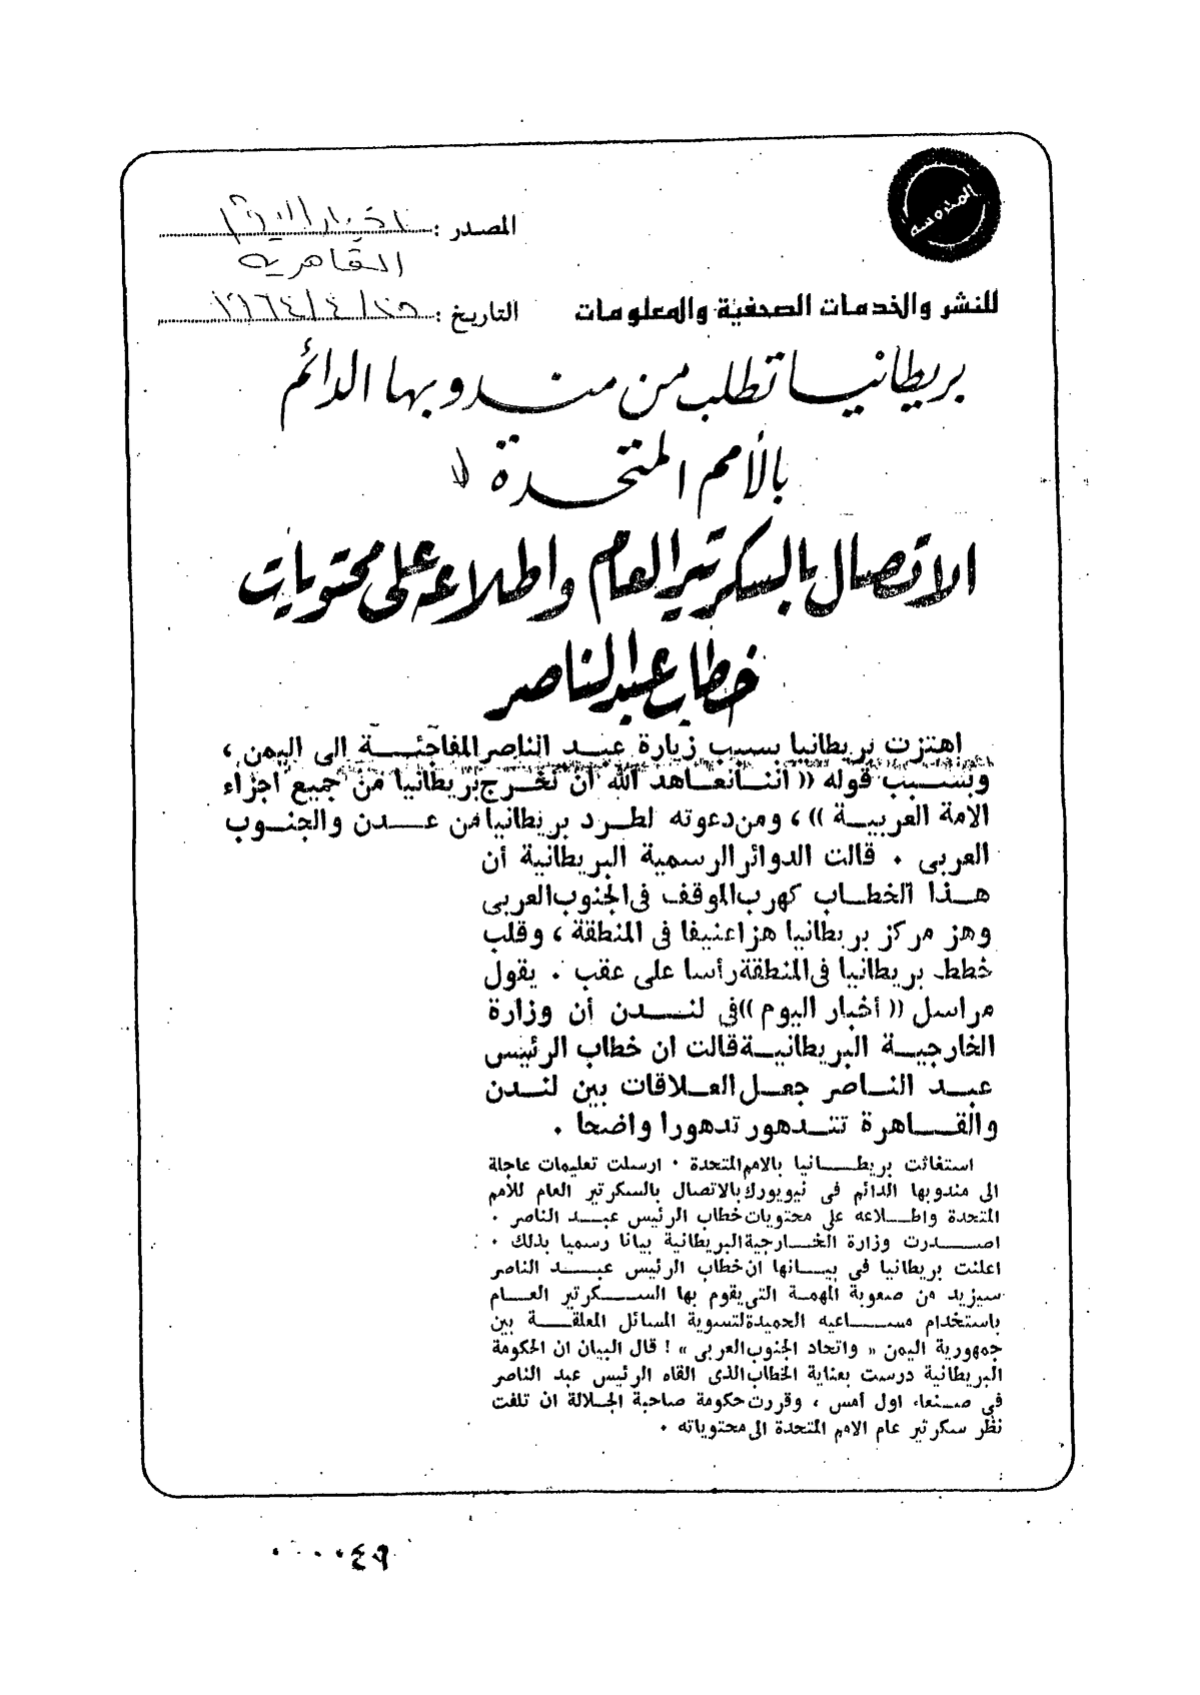 المحروسة
المصدر : اخبار اليوم
القاهرية
للنشر والخدمات الصحفية والمعلومات
التاريخ : ٢٥/٤/١٩٦٤
بريطانيا تطلب من مندوبها الدائم
بالأمم المتحدة
الاتصال بالسكرتير العام واطلاعه على محتويات
خطاب عبد الناصر
اهتزت بريطانيا بسبب زيارة عبد الناصر المفاجئة الى اليمن ،
وبسبب قوله (( اننا نعاهد الله ان تخرج بريطانيا من جميع اجزاء
الامة العربية )) ، ومن دعوته لطرد بريطانيا من عدن والجنوب
العربى . قالت الدوائر الرسمية البريطانية أن
هذا الخطاب كهرب الموقف فى الجنوب العربى
وهز مركز بريطانيا هزا عنيفا فى المنطقة ، وقلب
خطط بريطانيا فى المنطقة رأسا على عقب . يقول
مراسل (( أخبار اليوم )) فى لندن أن وزارة
الخارجية البريطانية قالت ان خطاب الرئيس
عبد الناصر جعل العلاقات بين لندن
والقاهرة تتدهور تدهورا واضحا .
استغاثت بريطانيا بالامم المتحدة . ارسلت تعليمات عاجلة
الى مندوبها الدائم فى نيويورك بالاتصال بالسكرتير العام للأمم
المتحدة واطلاعه على محتويات خطاب الرئيس عبد الناصر .
اصدرت وزارة الخارجية البريطانية بيانا رسميا بذلك .
اعلنت بريطانيا فى بيانها ان خطاب الرئيس عبد الناصر
سيزيد من صعوبة المهمة التى يقوم بها السكرتير العام
باستخدام مساعيه الحميدة لتسوية المسائل المعلقة بين
جمهورية اليمن « واتحاد الجنوب العربى » ! قال البيان ان الحكومة
البريطانية درست بعناية الخطاب الذى القاه الرئيس عبد الناصر
فى صنعاء اول أمس ، وقررت حكومة صاحبة الجلالة ان تلفت
نظر سكرتير عام الامم المتحدة الى محتوياته .
٠٠٠٠٤٩